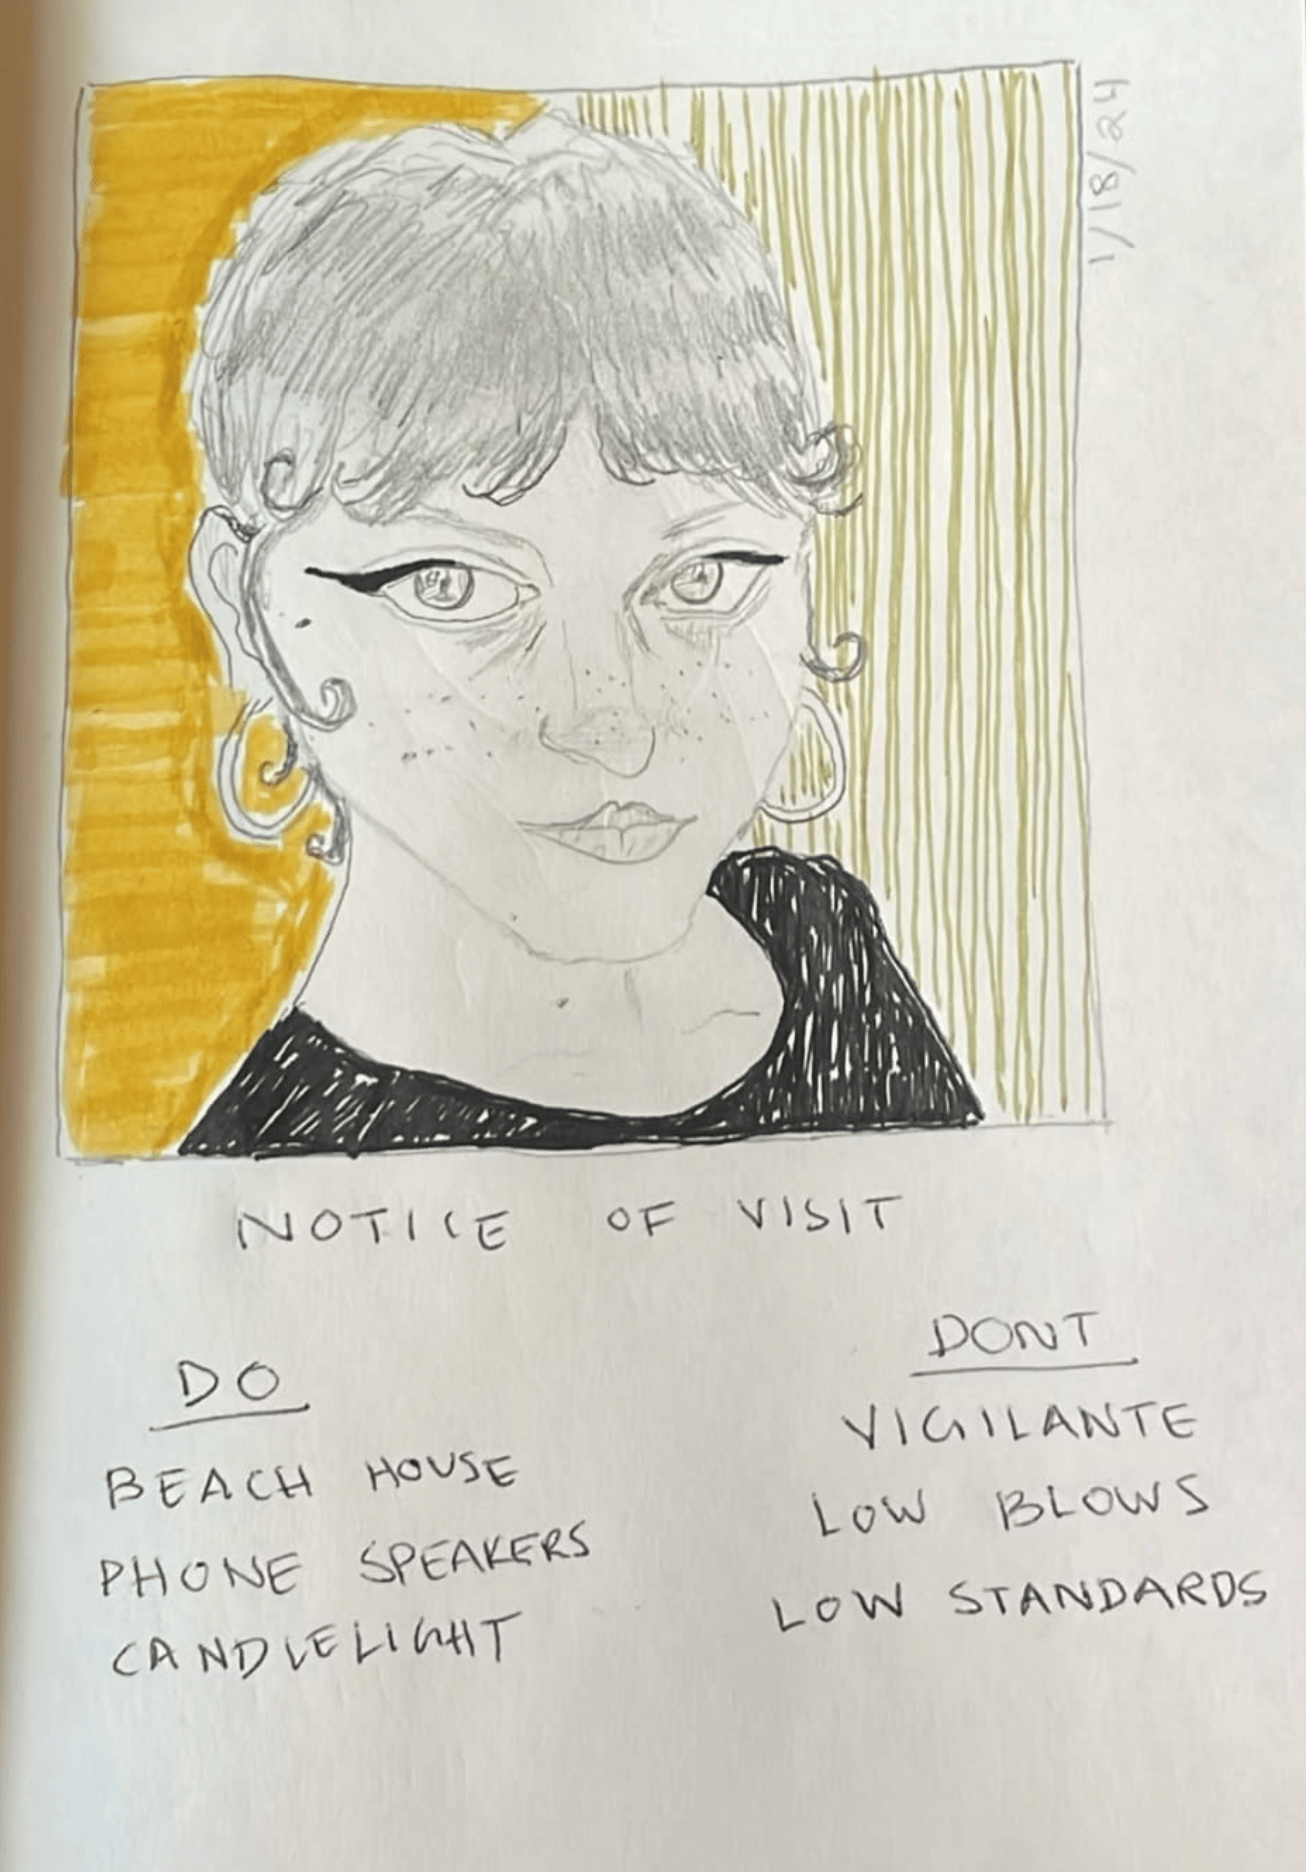 1/18/24
NOTICE OF VISIT
DO
BEACH HOUSE
PHONE SPEAKERS
CANDLELIGHT
DONT
VIGILANTE
LOW BLOWS
LOW STANDARDS